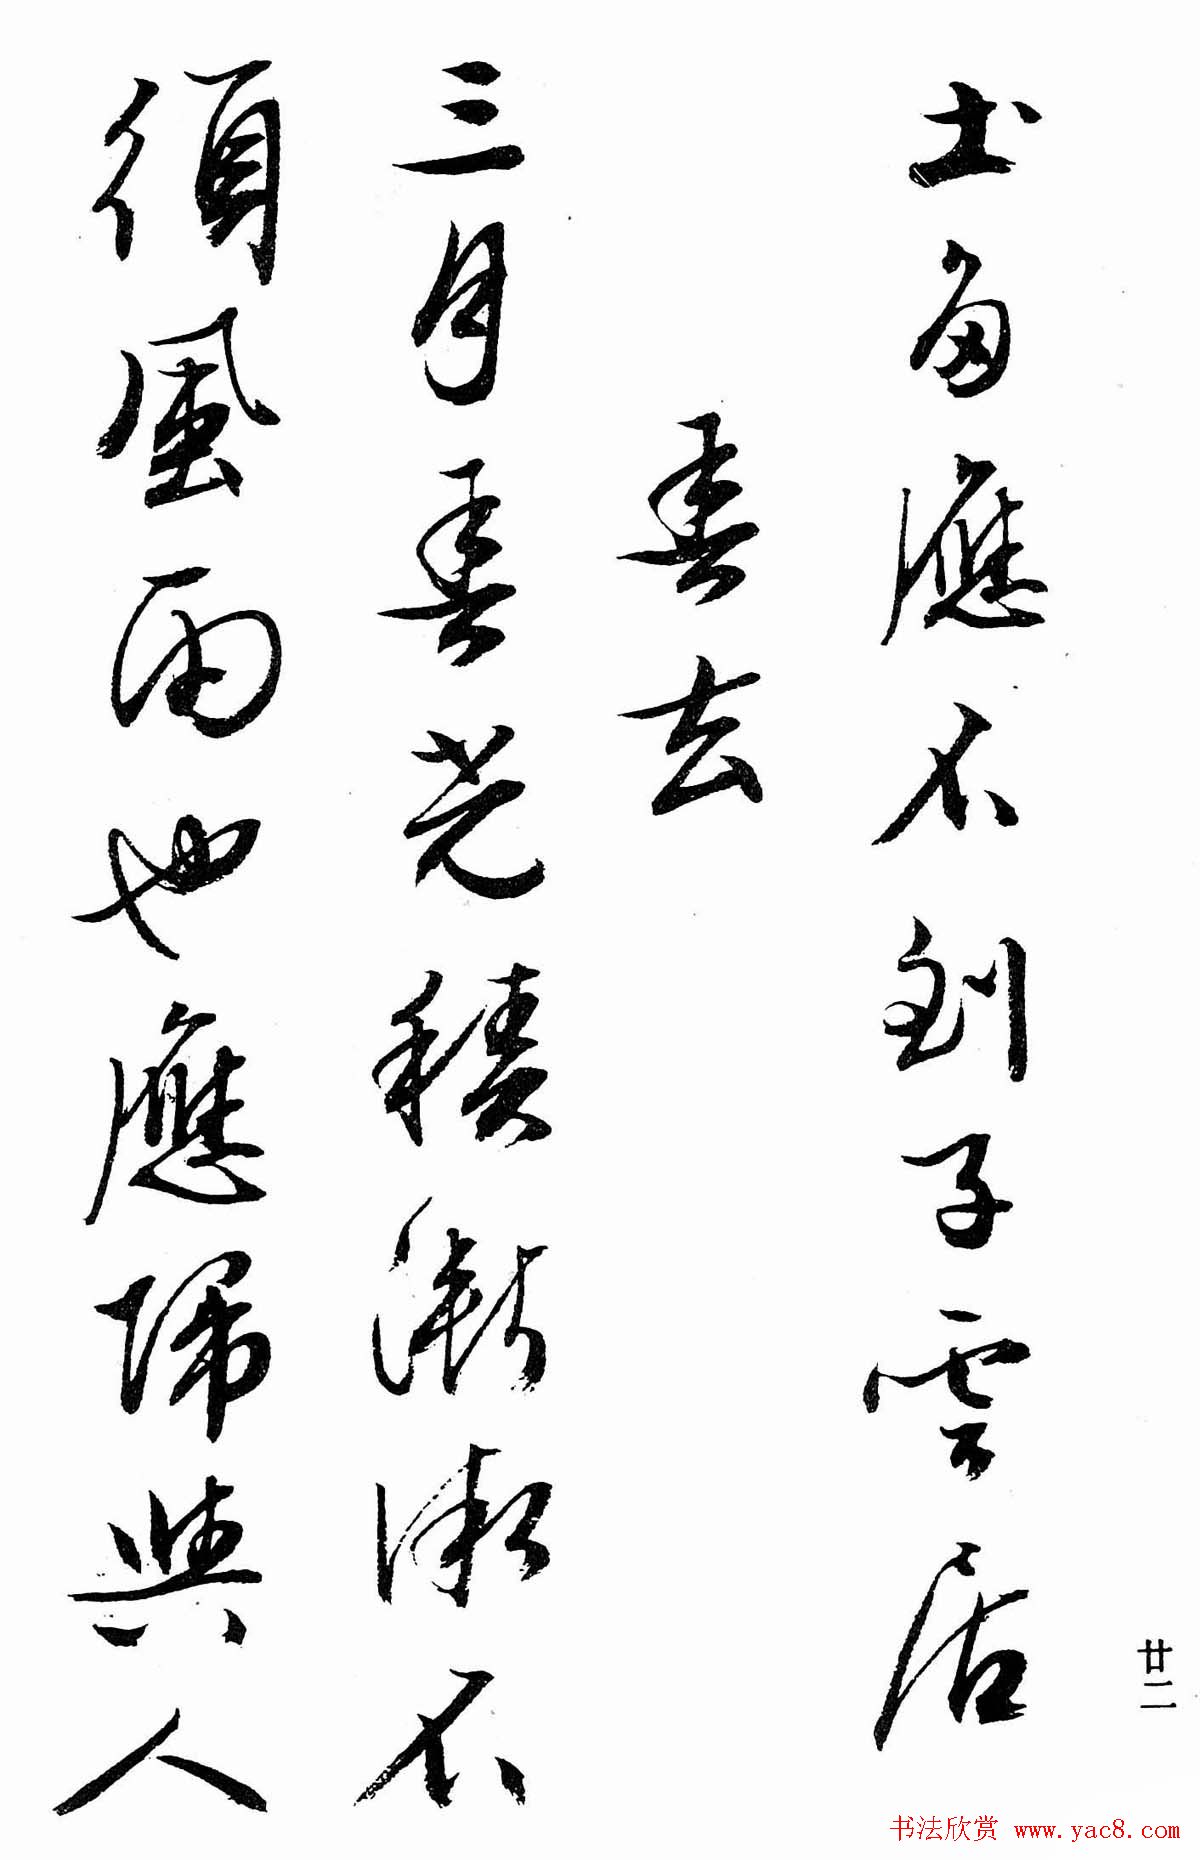 士多應不到子雲居
春去
三月春光積漸微不
須風雨也應歸與人
廿二
书法欣赏 www.yac8.com